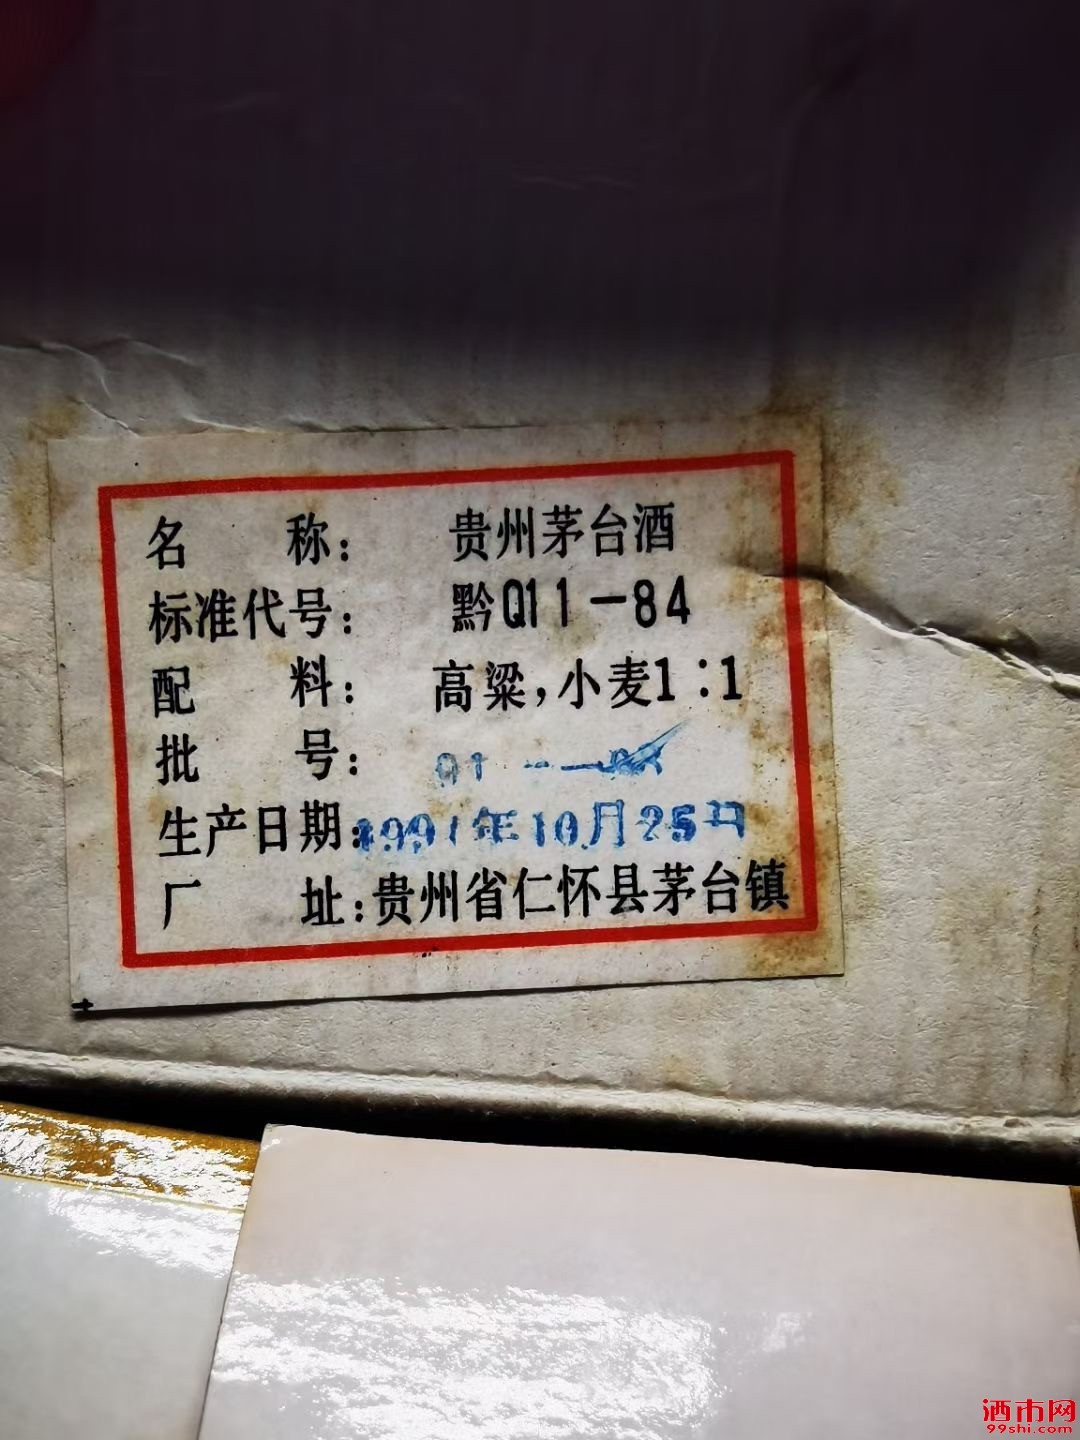 名 称: 贵州茅台酒
标准代号: 黔Q11-84
配 料: 高粱,小麦1:1
批 号: 91
生产日期:1991年10月25日
厂 址:贵州省仁怀县茅台镇
酒市网
99shi.com